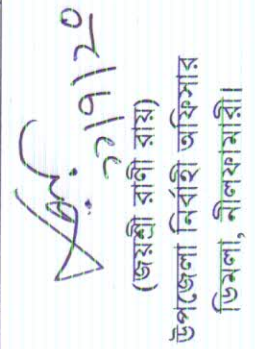 ২১/৭/২০
(জয়শ্রী রানী রায়)
উপজেলা নির্বাহী অফিসার
ডিমলা, নীলফামারী।